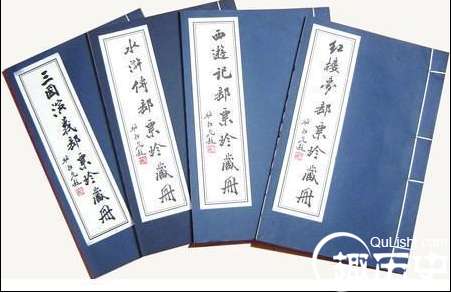 三国演义邮票珍藏册
水浒传邮票珍藏册
西游记邮票珍藏册
红楼梦邮票珍藏册
QuLishi.com
趣历史